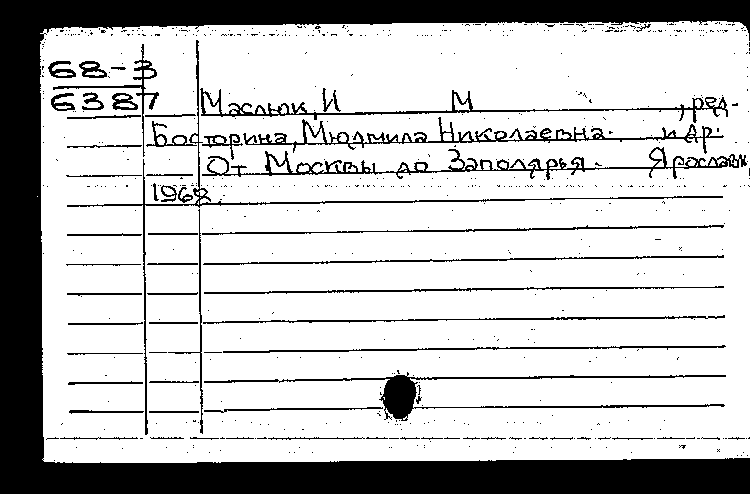 68-3
6387
Маслюк, И М , ред.
Босторина, Людмила Николаевна. и др.
От Москвы до Заполярья. Ярославль,
1968.